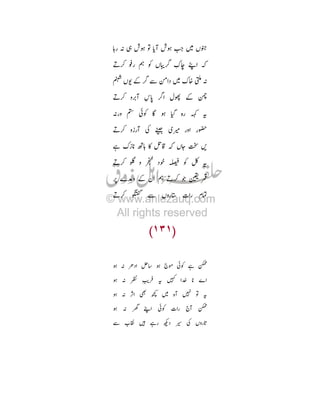 جنوں میں جب ہوش آیا تو ہوش ہی نہ رہا
کہ اپنے چاک گریباں کو ہم رفو کرتے
نہ ملتی خاک میں دامن سے گر کے یوں شبنم
چمن کے پھول اگر پاس آبرو کرتے
یہ کہہ رہ گیا ہو گا کوئی ستم ورنہ
حضور اور میری جینے کی آرزو کرتے
سخت جاں کہ قاتل کا ہاتھ نازک ہے
یہ کل کو فیصلہ خود خنجر و گلو کرتے
یقین جو کرتے ہم ان کے وعدے پر
تمام رات ستاروں سے گفتگو کرتے
© www.anlezauq.com
All rights reserved
(۱۳۱)
ممکن ہے کوئی موج ہو ساحل ادھر نہ ہو
اے نا خدا کہیں یہ فریب نظر نہ ہو
یہ تو نہیں آہ میں کچھ بھی اثر نہ ہو
ممکن آج رات کوئی اپنے گھر نہ ہو
تاروں کی سیر دیکھ رہے ہیں نقاب سے